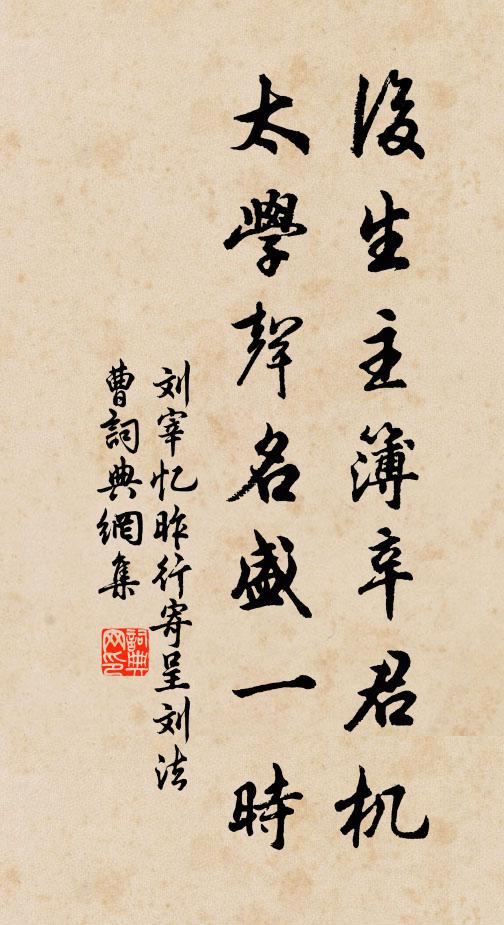 後生主簿辛君机
太學聲名盛一時
刘宰忆昨行寄呈刘法
曹詞典網集
詞典网印